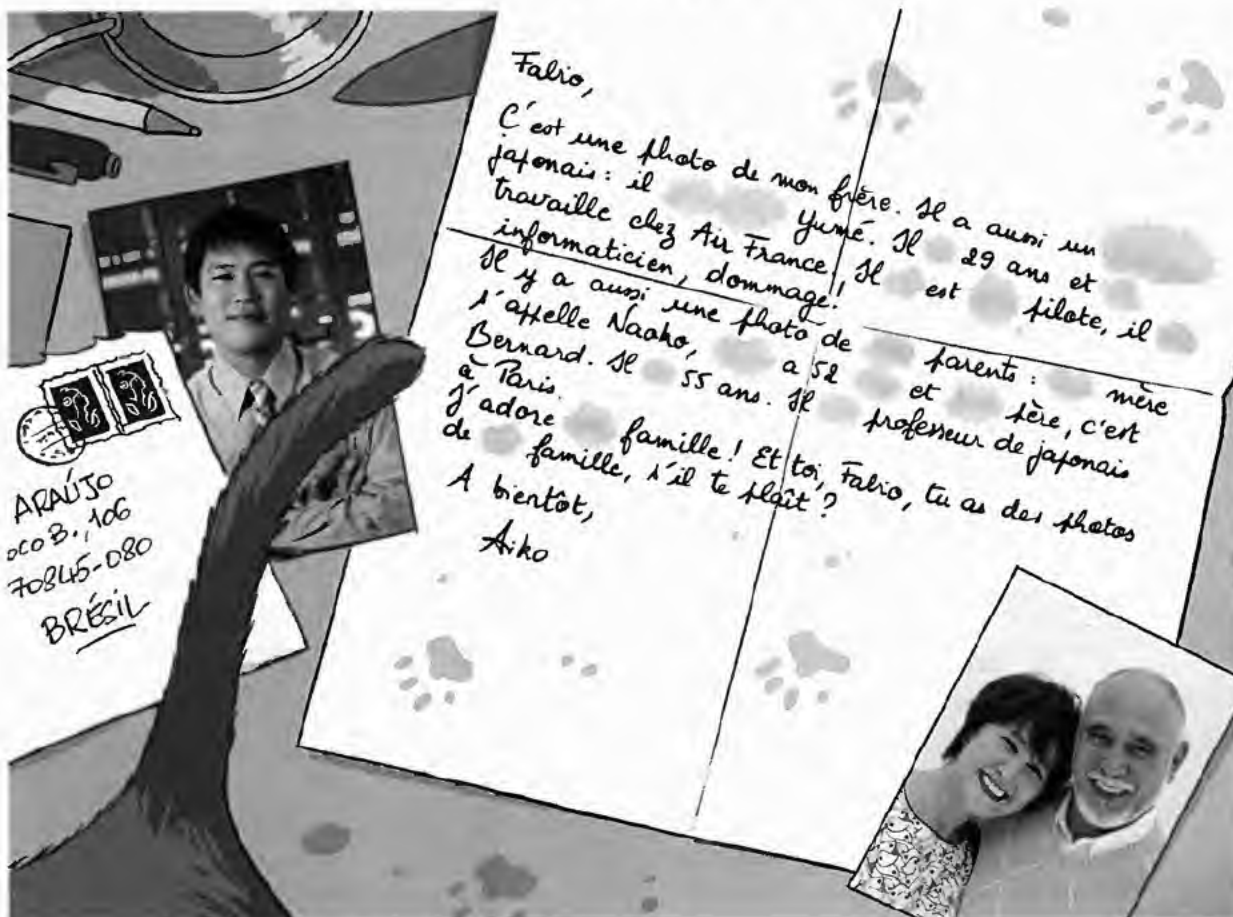 Fabio,
C'est une photo de mon frère. Il a aussi un
japonais : il Yumé. Il 29 ans et
travaille chez Air France. Il est pilote, il
informaticien, dommage !
Il y a aussi une photo de parents : mère
s'appelle Naoko, a 52 et père, c'est
Bernard. Il 55 ans. Il professeur de japonais
à Paris.
J'adore famille ! Et toi, Fabio, tu as des photos
de famille, s'il te plaît ?
A bientôt,
Aiko
ARAÚJO
oco B., 106
70845-080
BRÉSIL